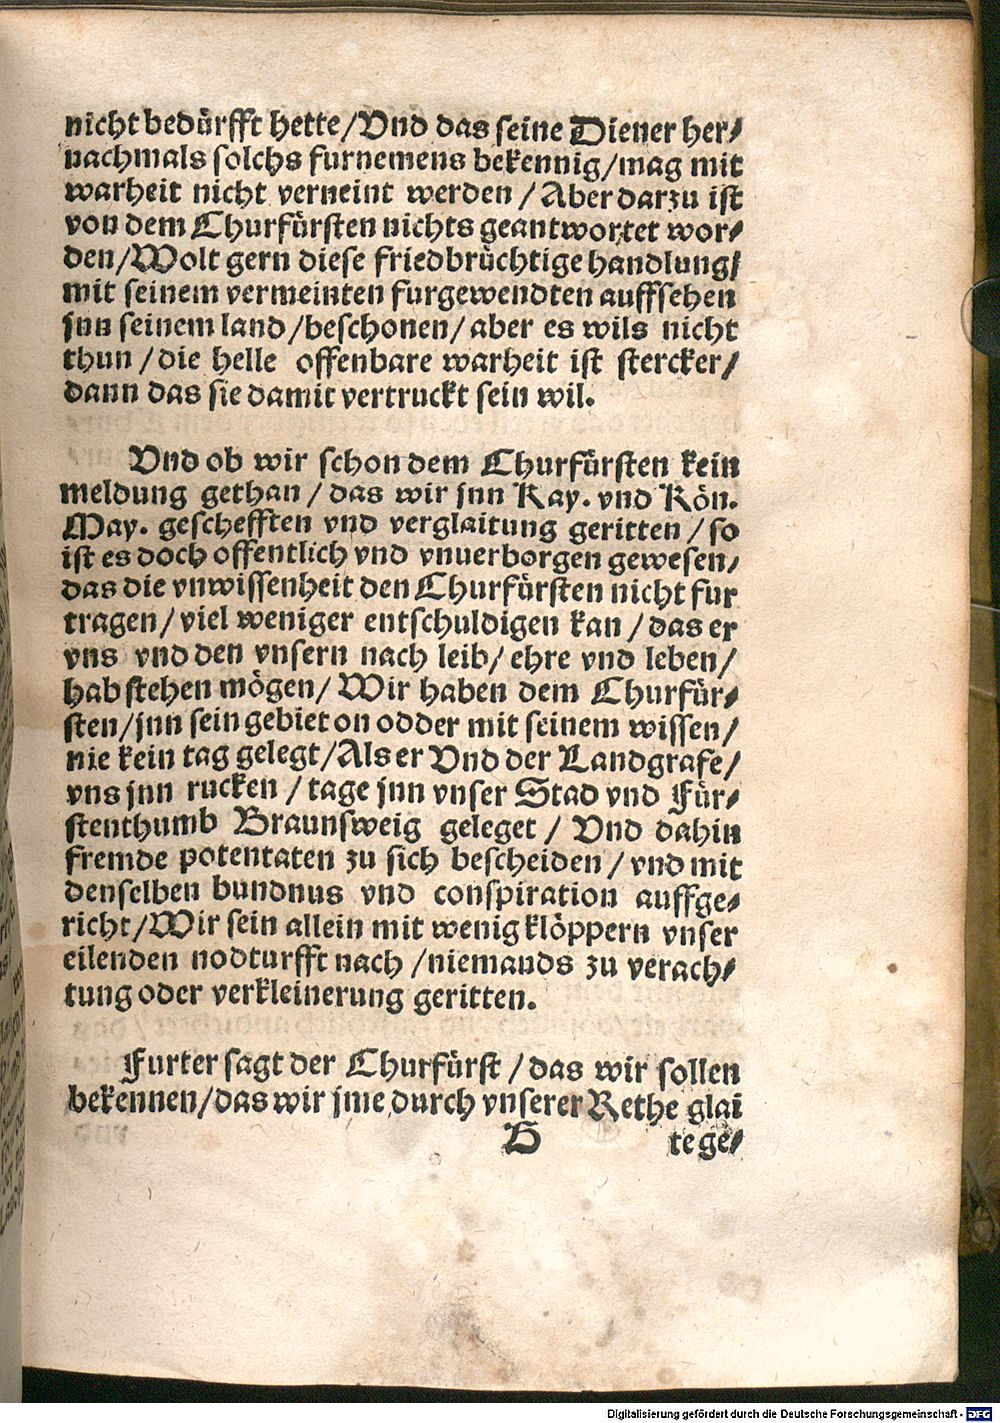 nicht bedürfft hette/Vnd das seine Diener her⸗
nachmals solchs furnemens bekennig/mag mit
warheit nicht verneint werden/Aber darzu ist
von dem Churfürsten nichts geantwortet wor⸗
den/Wolt gern diese friedbrüchtige handlung/
mit seinem vermeinten furgewendten auffsehen
jnn seinem land/beschonen/aber es wils nicht
thun/die helle offenbare warheit ist stercker/
dann das sie damit vertruckt sein wil.
Vnd ob wir schon dem Churfürsten kein
meldung gethan/das wir jnn Kay. vnd Kön.
May. geschefften vnd verglaitung geritten/so
ist es doch offentlich vnd vnuerborgen gewesen/
das die vnwissenheit den Churfürsten nicht fur
tragen/viel weniger entschuldigen kan/das er
vns vnd den vnsern nach leib/ehre vnd leben/
hab stehen mögen/Wir haben dem Churfür⸗
sten/jnn sein gebiet on odder mit seinem wissen/
nie kein tag gelegt/Als er Vnd der Landgrafe/
vns jnn rucken/tage jnn vnser Stad vnd Für⸗
stenthumb Braunsweig geleget/Vnd dahin
fremde potentaten zu sich bescheiden/vnd mit
denselben bundnus vnd conspiration auffge⸗
richt/Wir sein allein mit wenig klöppern vnser
eilenden nodturfft nach/niemands zu verach⸗
tung oder verkleinerung geritten.
Furter sagt der Churfürst/das wir sollen
bekennen/das wir jme durch vnserer Rethe glai
H te ge⸗
Digitalisierung gefördert durch die Deutsche Forschungsgemeinschaft - DFG